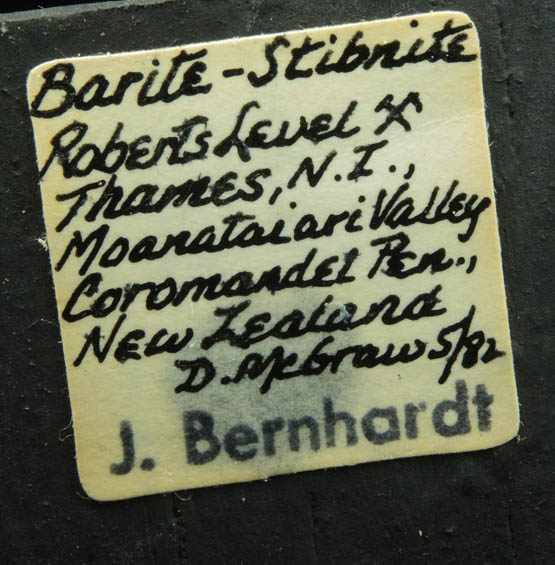 Barite - Stibnite
Roberts Level ⚒
Thames, N.I.,
Moanataiari Valley
Coromandel Pen.,
New Zealand
D. McGraw 5/82
J. Bernhardt